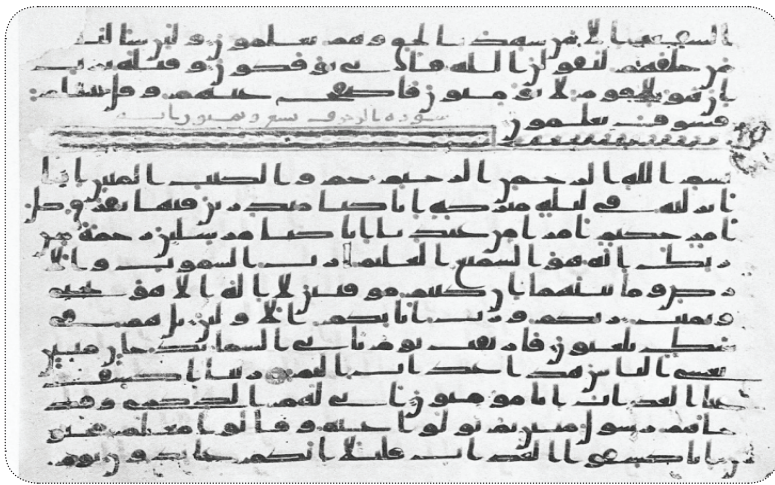 الشفعة الا من شهد بالحق وهم يعلمون ولئن سالتهم
من خلقهم ليقولن الله فانى يوفكون وقيله يرب
ان هولا قوم لا يومنون فاصفح عنهم وقل سلم
فسوف تعلمون سورة الزخرف تسع وثمنون اية
بسم الله الرحمن الرحيم حم والكتب المبين انا
انزلنه في ليلة مبركة انا كنا منذرين فيها يفرق كل
امر حكيم امرا من عندنا انا كنا مرسلين رحمة من
ربك انه هو السميع العليم رب السموت والار
ض وما بينهما ان كنتم موقنين لا اله الا هو يحيي
ويميت ربكم ورب ابائكم الاولين بل هم في
شك يلعبون فارتقب يوم تاتي السما بدخان مبين
يغشى الناس هذا عذاب اليم ربنا اكشف
عنا العذاب انا مومنون انى لهم الذكرى وقد
جاهم رسول مبين ثم تولوا عنه وقالوا معلم مجنو
ن انا كاشفوا العذاب قليلا انكم عائدون يوم